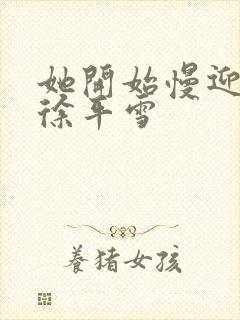 她開始慢迎
徐平雪
養猪女孩